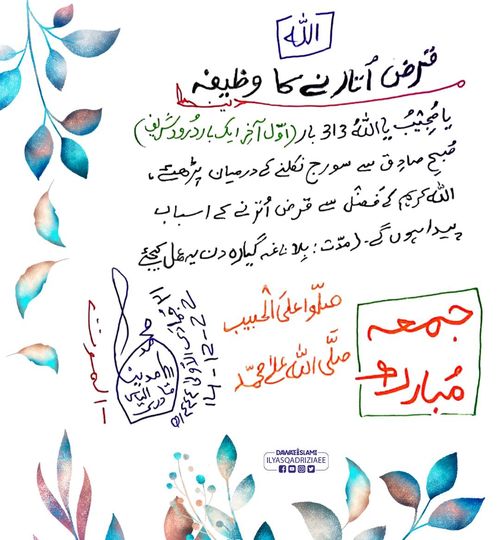 الله
قرض اُتارنے کا وظیفہ
یا مُجِیْبُ یا اَللهُ 313 بار (اوّل آخر ایک بار دُرود شریف)
صُبحِ صادِق سے سورج نکلنے کے درمیان پڑھئے،
الله کریم کے فضْل سے قرض اُترنے کے اسباب
پیدا ہوں گے۔ (مدّت: بِلا ناغہ گیارہ دن یہ عمل کیجئے
صلّوا علَی الْحَبِیب
صلَّی اللهُ علٰی محمّد
جمعہ
مُبارک
الموت
محمد الیاس قادری
DAWATEISLAMI
ILYASQADRIZIAEE